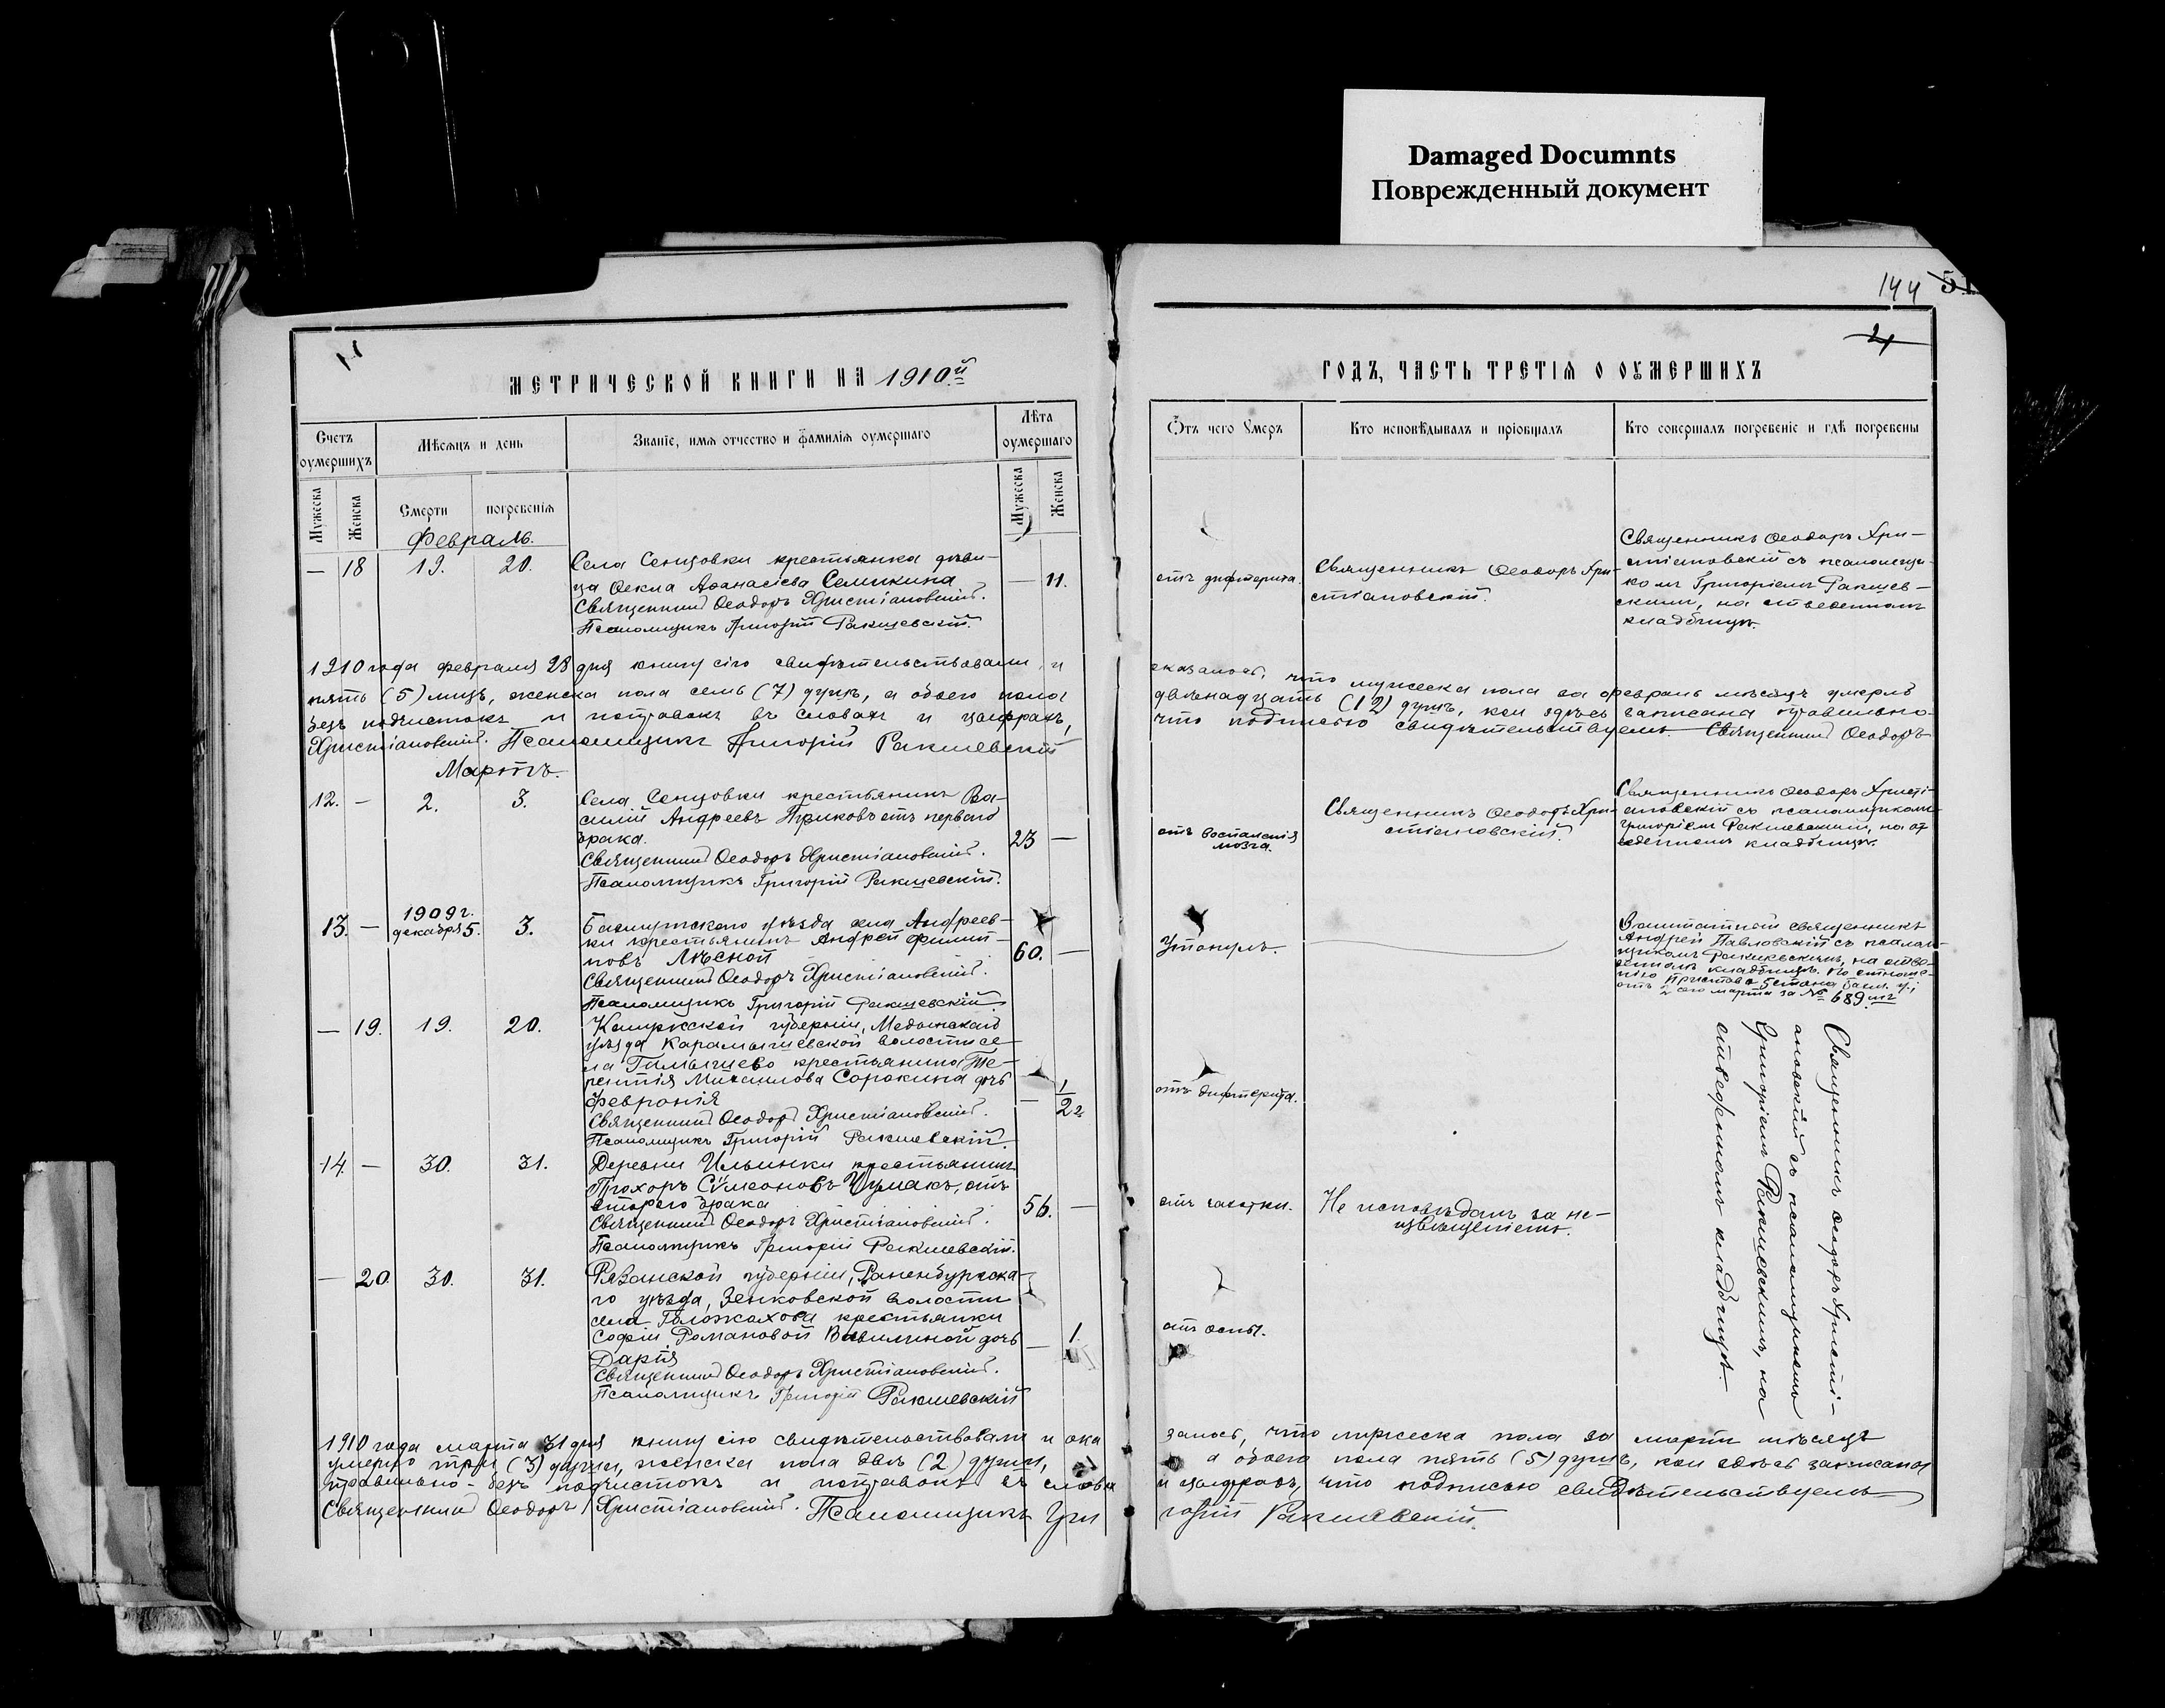 Damaged Documnts
Поврежденный документ
144 51
21
МЕТРИЧЕСКОЙ КНИГИ НА 1910й
ГОДЪ, ЧАСТЬ ТРЕТІЯ О ОУМЕРШИХЪ
Счетъ оумершихъ
Мѣсяцъ и день
Званіе, имя отчество и фамилія оумершаго
Лѣта оумершаго
Мужеска
Женска
Смерти
погребенія
Мужеска
Женска
Отъ чего Умеръ
Кто исповѣдывалъ и пріобщалъ
Кто совершалъ погребеніе и гдѣ погребены
Февраль.
— 18 19. 20.
Села Сенцовки крестьянка дѣви-
ца Ѳекла Аѳанасіева Семикина
Священникъ Ѳеодоръ Христіановскій.
Псаломщикъ Григорій Ракшевскій.
— 11.
отъ дифтерита.
Священникъ Ѳеодоръ Хри-
стіановскій.
Священникъ Ѳеодоръ Хри-
стіановскій съ псаломщи-
комъ Григоріемъ Ракшев-
скимъ, на отведенномъ
кладбищѣ.
1910 года февраля 28 дня книгу сію свидѣтельствовали, и
оказалось, что мужеска пола за февраль мѣсяцъ умерлъ
пять (5) лицъ, женска пола семь (7) душъ, а обоего пола
двѣнадцать (12) душъ, кои здѣсь записана правильно
безъ подчистокъ и поправокъ въ словахъ и цыфрахъ,
что подписью свидѣтельствуемъ. Священникъ Ѳеодоръ
Христіановскій. Псаломщикъ Григорій Ракшевскій
Мартъ.
12. — 2. 3.
Села Сенцовки крестьянинъ Ва-
силій Андреевъ отъ перваго
брака.
Священникъ Ѳеодоръ Христіановскій.
Псаломщикъ Григорій Ракшевскій.
23 —
отъ воспаленія
мозга.
Священникъ Ѳеодоръ Хри-
стіановскій.
Священникъ Ѳеодоръ Христі-
ановскій съ псаломщикомъ
Григоріемъ Ракшевскимъ, на от-
веденномъ кладбищѣ.
13. — 1909 г.
декабря 5. 3.
Бахмутскаго уѣзда села Андреев-
ки крестьянинъ Андрей Филип-
повъ Лѣсной
Священникъ Ѳеодоръ Христіановскій.
Псаломщикъ Григорій Ракшевскій.
60. —
Утонулъ.
Заштатной священникъ
Андрей Павловскій съ псалом-
щикомъ Ракшевскимъ, на отве-
денномъ кладбищѣ. По отноше-
нію Пристава 5 стана
отъ 2 сего марта за № 689
— 19. 19. 20.
Калужской губерніи, Медынскаго
уѣзда Карамышевской волости се-
ла крестьянина Те-
рентія Михаилова Сорокина дочь
Февронія
Священникъ Ѳеодоръ Христіановскій.
Псаломщикъ Григорій Ракшевскій.
— 1/2 г.
отъ дифтерита.
14. — 30. 31.
Деревни Ильинки крестьянинъ
Прохоръ Сѵмеоновъ Чумакъ, отъ
второго брака
Священникъ Ѳеодоръ Христіановскій.
Псаломщикъ Григорій Ракшевскій.
56. —
отъ чахотки.
Не исповѣданъ за не-
извѣщеніемъ.
— 20. 30. 31.
Рязанской губерніи, Раненбургска-
го уѣзда, Зенковской волости
села крестьянки
Софіи Романовой Вавилиной дочь
Дарія
Священникъ Ѳеодоръ Христіановскій.
Псаломщикъ Григорій Ракшевскій
— 1.
отъ оспы.
Священникъ Ѳеодоръ Христі-
ановскій съ псаломщикомъ
Григоріемъ Ракшевскимъ, на
отведенномъ кладбищѣ.
1910 года марта 31 дня книгу сію свидѣтельствовали и ока
залось, что мужеска пола за мартъ мѣсяцъ
умерло три (3) души, женска пола двѣ (2) души,
а обоего пола пять (5) душъ, кои здѣсь записана
правильно — безъ подчистокъ и поправокъ въ слова
и цыфрахъ, что подписью свидѣтельствуемъ
Священникъ Ѳеодоръ Христіановскій. Псаломщикъ Гри
горій Ракшевскій.